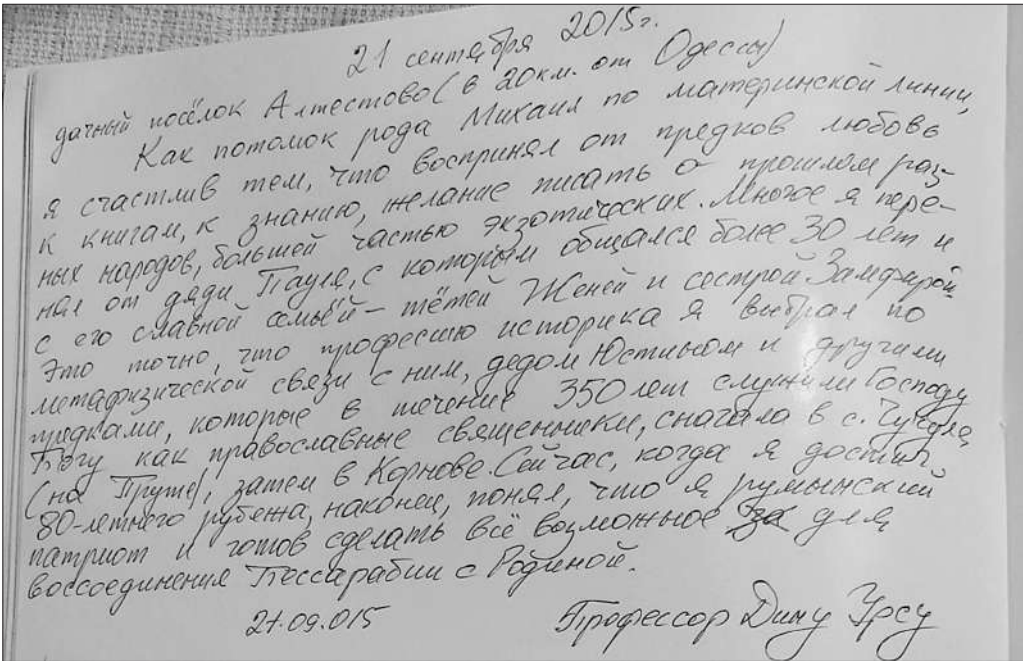 21 сентября 2015г.
дачный посёлок Алтестово (в 20км. от Одессы)
Как потомок рода Михаил по материнской линии,
я счастлив тем, что воспринял от предков любовь
к книгам, к знанию, желание писать о прошлом раз-
ных народов, большей частью экзотических. Многое я пере-
нял от дяди Пауля, с которым общался более 30 лет и
с его славной семьёй – тётей Женей и сестрой Замфирой.
Это точно, что профессию историка я выбрал по
метафизической связи с ним, дедом Юстином и другими
предками, которые в течение 350 лет служили Господу
Богу как православные священники, сначала в с. Чучуля
(на Пруте), затем в Корнове. Сейчас, когда я достиг
80-летнего рубежа, наконец, понял, что я румынский
патриот и готов сделать всё возможное за для
воссоединения Бессарабии с Родиной.
21.09.015
Профессор Дину Урсу